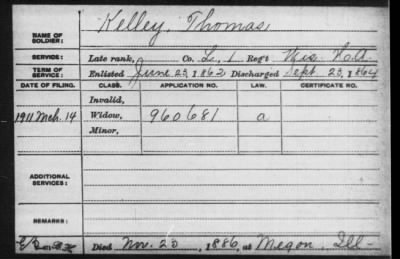 NAME OF SOLDIER: Kelley, Thomas
SERVICE: Late rank, Co. L, 1 Reg't Wis H.A.
TERM OF SERVICE: Enlisted June 23, 1862 Discharged Sept. 23, 1864
DATE OF FILING. CLASS. APPLICATION NO. LAW. CERTIFICATE NO.
Invalid,
1911 Mch. 14 Widow, 960681 a
Minor,
ADDITIONAL SERVICES:
REMARKS:
Died Nov. 23, 1886, at Megon, Ill-